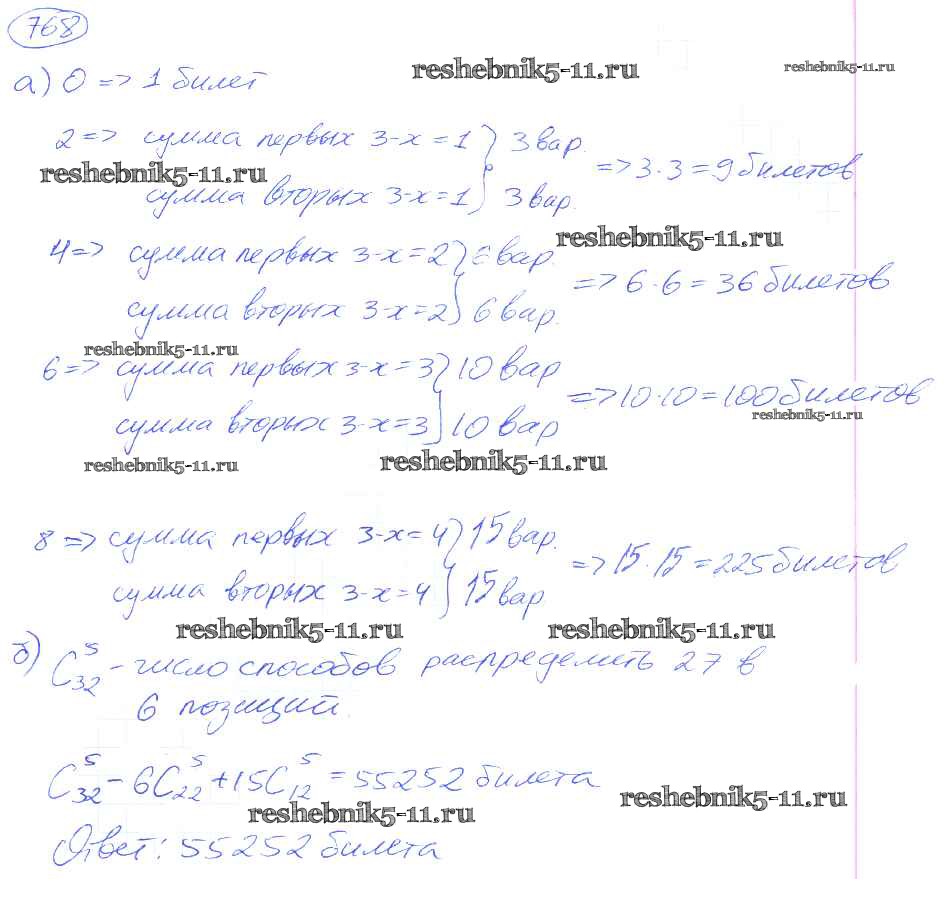 768
reshebnik5-11.ru
reshebnik5-11.ru
а) 0 => 1 билет
2 => сумма первых 3-х = 1 } 3 вар.
reshebnik5-11.ru
=> 3·3 = 9 билетов
сумма вторых 3-х = 1 } 3 вар.
reshebnik5-11.ru
4 => сумма первых 3-х = 2 } 6 вар.
=> 6·6 = 36 билетов
сумма вторых 3-х = 2 } 6 вар.
reshebnik5-11.ru
6 => сумма первых 3-х = 3 } 10 вар
=> 10·10 = 100 билетов
reshebnik5-11.ru
сумма вторых 3-х = 3 } 10 вар
reshebnik5-11.ru
reshebnik5-11.ru
8 => сумма первых 3-х = 4 } 15 вар.
=> 15·15 = 225 билетов
сумма вторых 3-х = 4 } 15 вар
reshebnik5-11.ru
reshebnik5-11.ru
б) C₃₂⁵ - число способов распределить 27 в
6 позиций.
C₃₂⁵ - 6C₂₂⁵ + 15C₁₂⁵ = 55252 билета
reshebnik5-11.ru
reshebnik5-11.ru
Ответ: 55252 билета